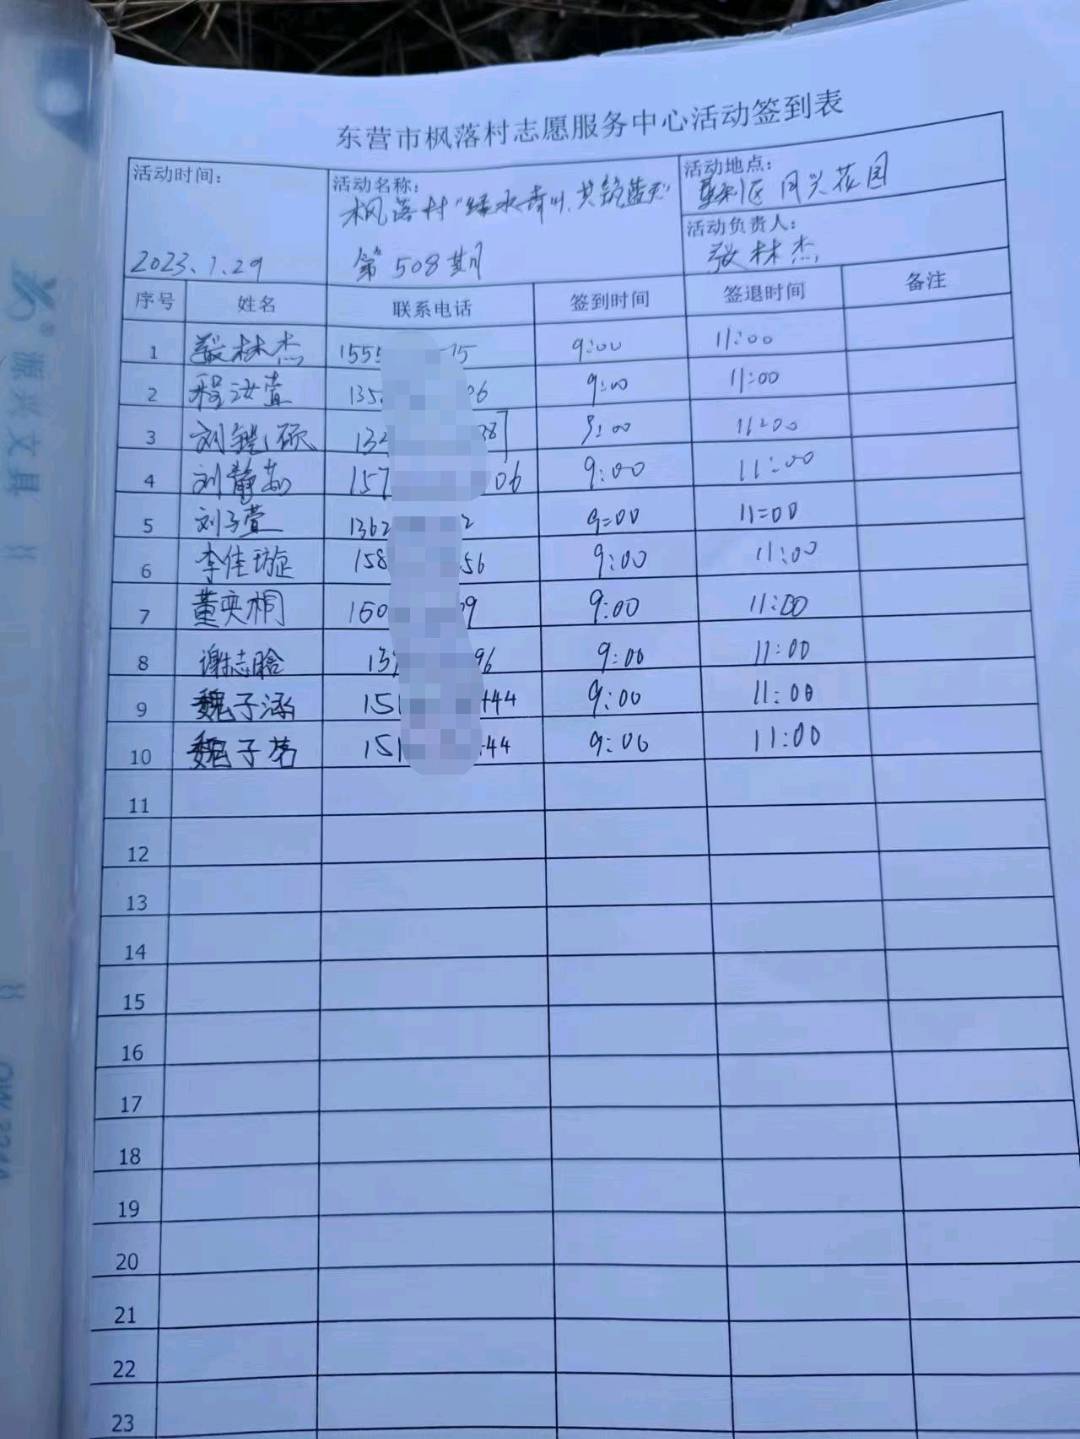 东营市枫落村志愿服务中心活动签到表
活动时间: 2023.1.29
活动名称: 枫落村"绿水青山,共筑蓝天"
第508期
活动地点: 垦利区 同兴花园
活动负责人: 张林杰
序号 姓名 联系电话 签到时间 签退时间 备注
1 张林杰 1555 75 9:00 11:00
2 程汝萱 135 06 9:00 11:00
3 刘 硕 132 387 9:00 11:00
4 刘静茹 157 06 9:00 11:00
5 刘子萱 1362 2 9:00 11:00
6 李佳璇 158 56 9:00 11:00
7 董奕桐 150 09 9:00 11:00
8 谢志晗 13 96 9:00 11:00
9 魏子涵 151 444 9:00 11:00
10 魏子茗 151 44 9:00 11:00
11
12
13
14
15
16
17
18
19
20
21
22
23